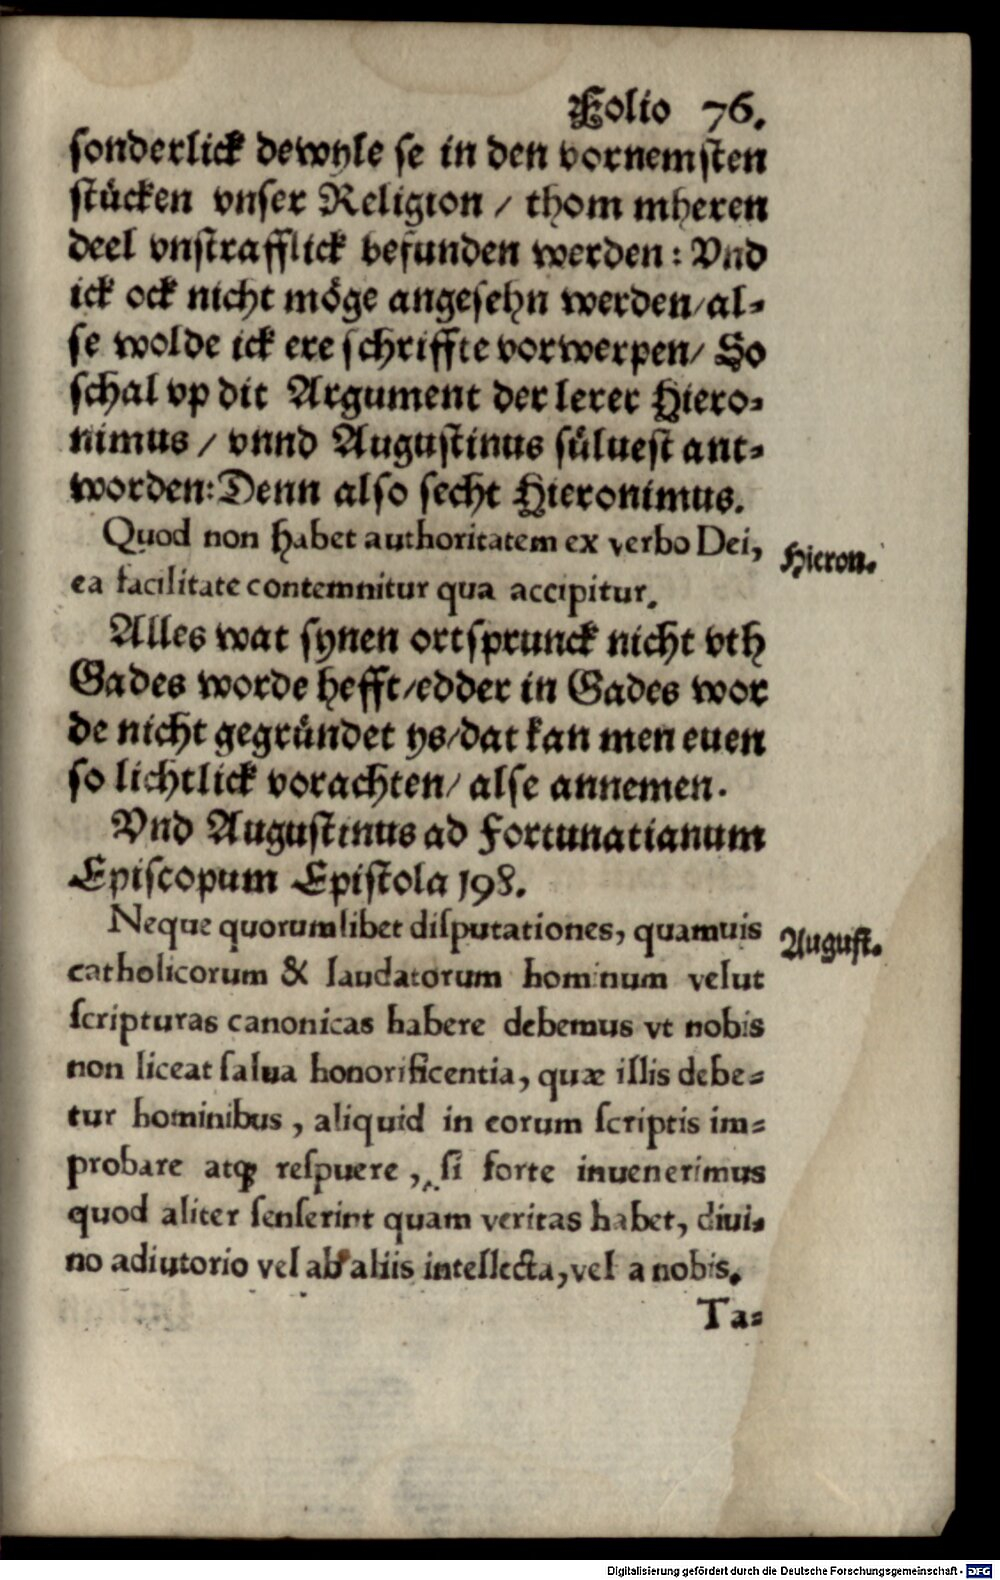 Folio 76.
sonderlick dewyle se in den vornemsten
stücken vnser Religion / thom mheren
deel vnstrafflick befunden werden: Vnd
ick ock nicht möge angesehn werden/al⸗
se wolde ick ere schriffte vorwerpen/ So
schal vp dit Argument der lerer Hiero⸗
nimus / vnnd Augustinus süluest ant⸗
worden: Denn also secht Hieronimus.
Quod non habet authoritatem ex verbo Dei,
Hieron.
ea facilitate contemnitur qua accipitur.
Alles wat synen ortsprunck nicht vth
Gades worde hefft/edder in Gades wor
de nicht gegründet ys/dat kan men euen
so lichtlick vorachten/ alse annemen.
Vnd Augustinus ad Fortunatianum
Episcopum Epistola 198.
Neque quorumlibet diſputationes, quamuis
August.
catholicorum & laudatorum hominum velut
ſcripturas canonicas habere debemus vt nobis
non liceat ſalua honorificentia, quæ illis debe⸗
tur hominibus, aliquid in eorum ſcriptis im⸗
probare atq; reſpuere, ſi forte inuenerimus
quod aliter ſenſerint quam veritas habet, diui⸗
no adiutorio vel ab aliis intellecta, vel a nobis.
Ta⸗
Digitalisierung gefördert durch die Deutsche Forschungsgemeinschaft - DFG